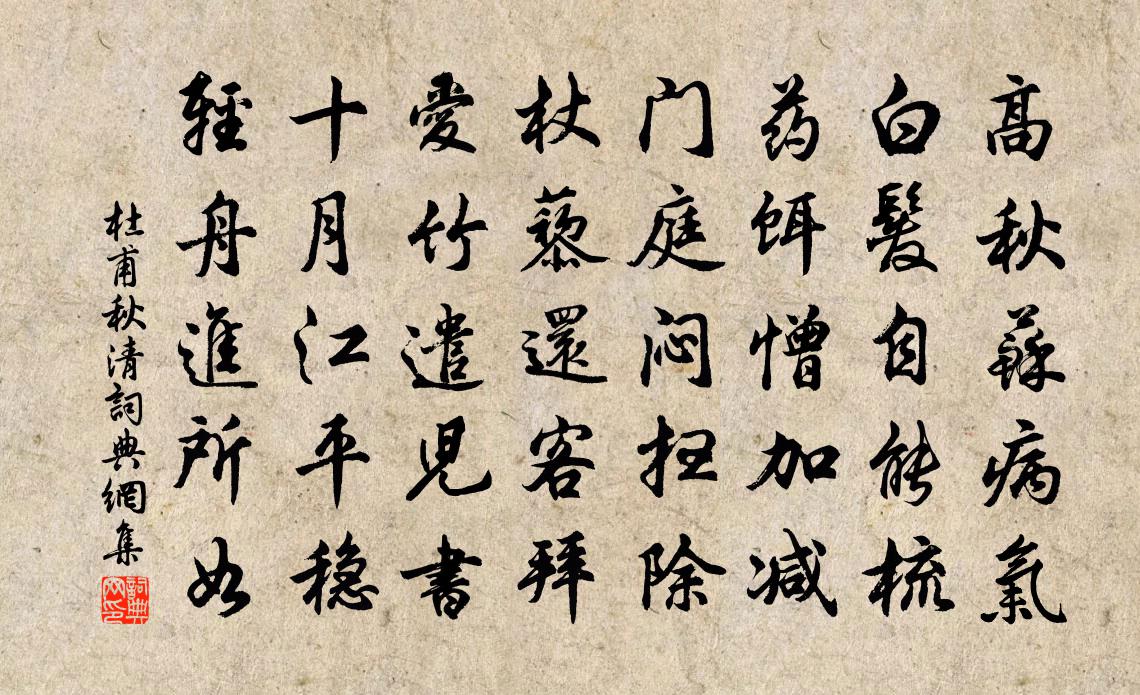 高秋蘇病氣
白髮自能梳
药餌憎加减
门庭闷扫除
杖藜還客拜
愛竹遣児書
十月江平穏
輕舟進所如
杜甫秋清詞典網集
詞典网印